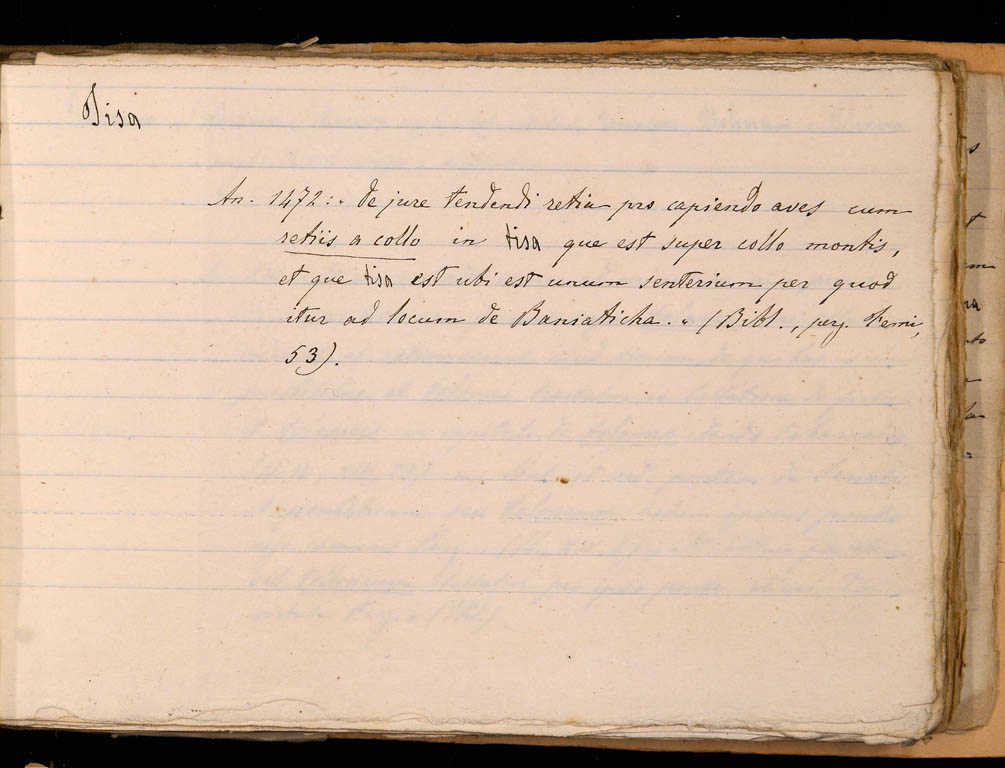 Tisa
An. 1472: " De jure tendendi retia pro capiendo aves cum
retiis a collo in tisa que est super collo montis,
et que tisa est ubi est unum senterium per quod
itur ad locum de Baniaticha. " (Bibl., perg.
53).